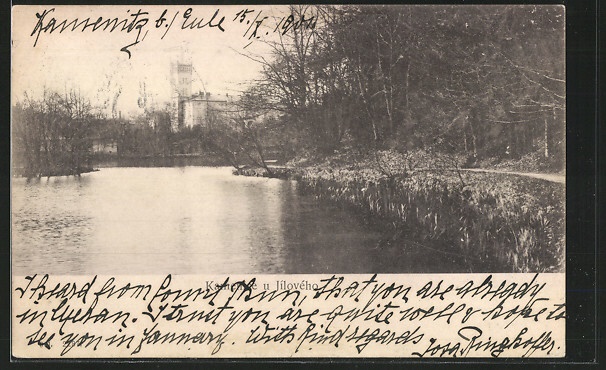 Kamenitz, b/ Eule 15/X. 1904
Kamenice u Jílového.
I heard from Count Thun, that you are already
in Meran. I trust you are quite well & hope to
see you in January. With kind regards
Josa Ringhoffer.